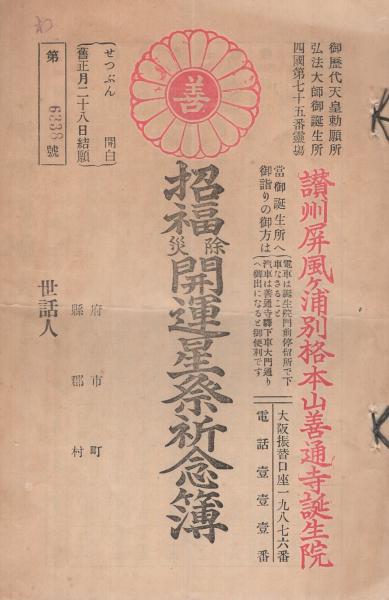 御歷代天皇勅願所
弘法大師御誕生所
四國第七十五番靈場
讃州屏風ケ浦別格本山善通寺誕生院
當御誕生所へ
御詣りの御方は
電車は誕生院門前停留所で下
車なさること
汽車は善通寺驛下車大門通り
へ御出になると御便利です
大阪振替口座一九八七六番
電話壹壹壹番
善
招福除災開運星祭祈念簿
せつぶん 開白
舊正月二十八日結願
第 6338 號
府 市 町
縣 郡 村
世話人